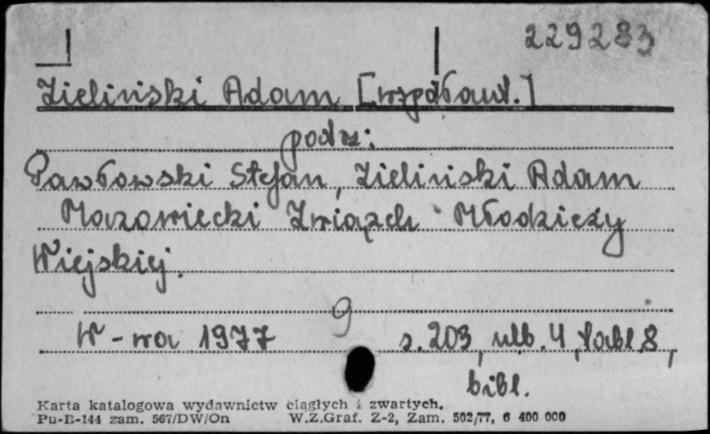 229283
Zieliński Adam [współaut.]
podz:
Pawłowski Stefan, Zieliński Adam
Mazowiecki Związek Młodzieży
Wiejskiej.
9
W-wa 1977 s. 203, nlb. 4, tabl. 8,
bibl.
Karta katalogowa wydawnictw ciągłych i zwartych.
Pu-B-144 zam. 567/DW/On W.Z.Graf. Z-2, Zam. 502/77, 6 400 000